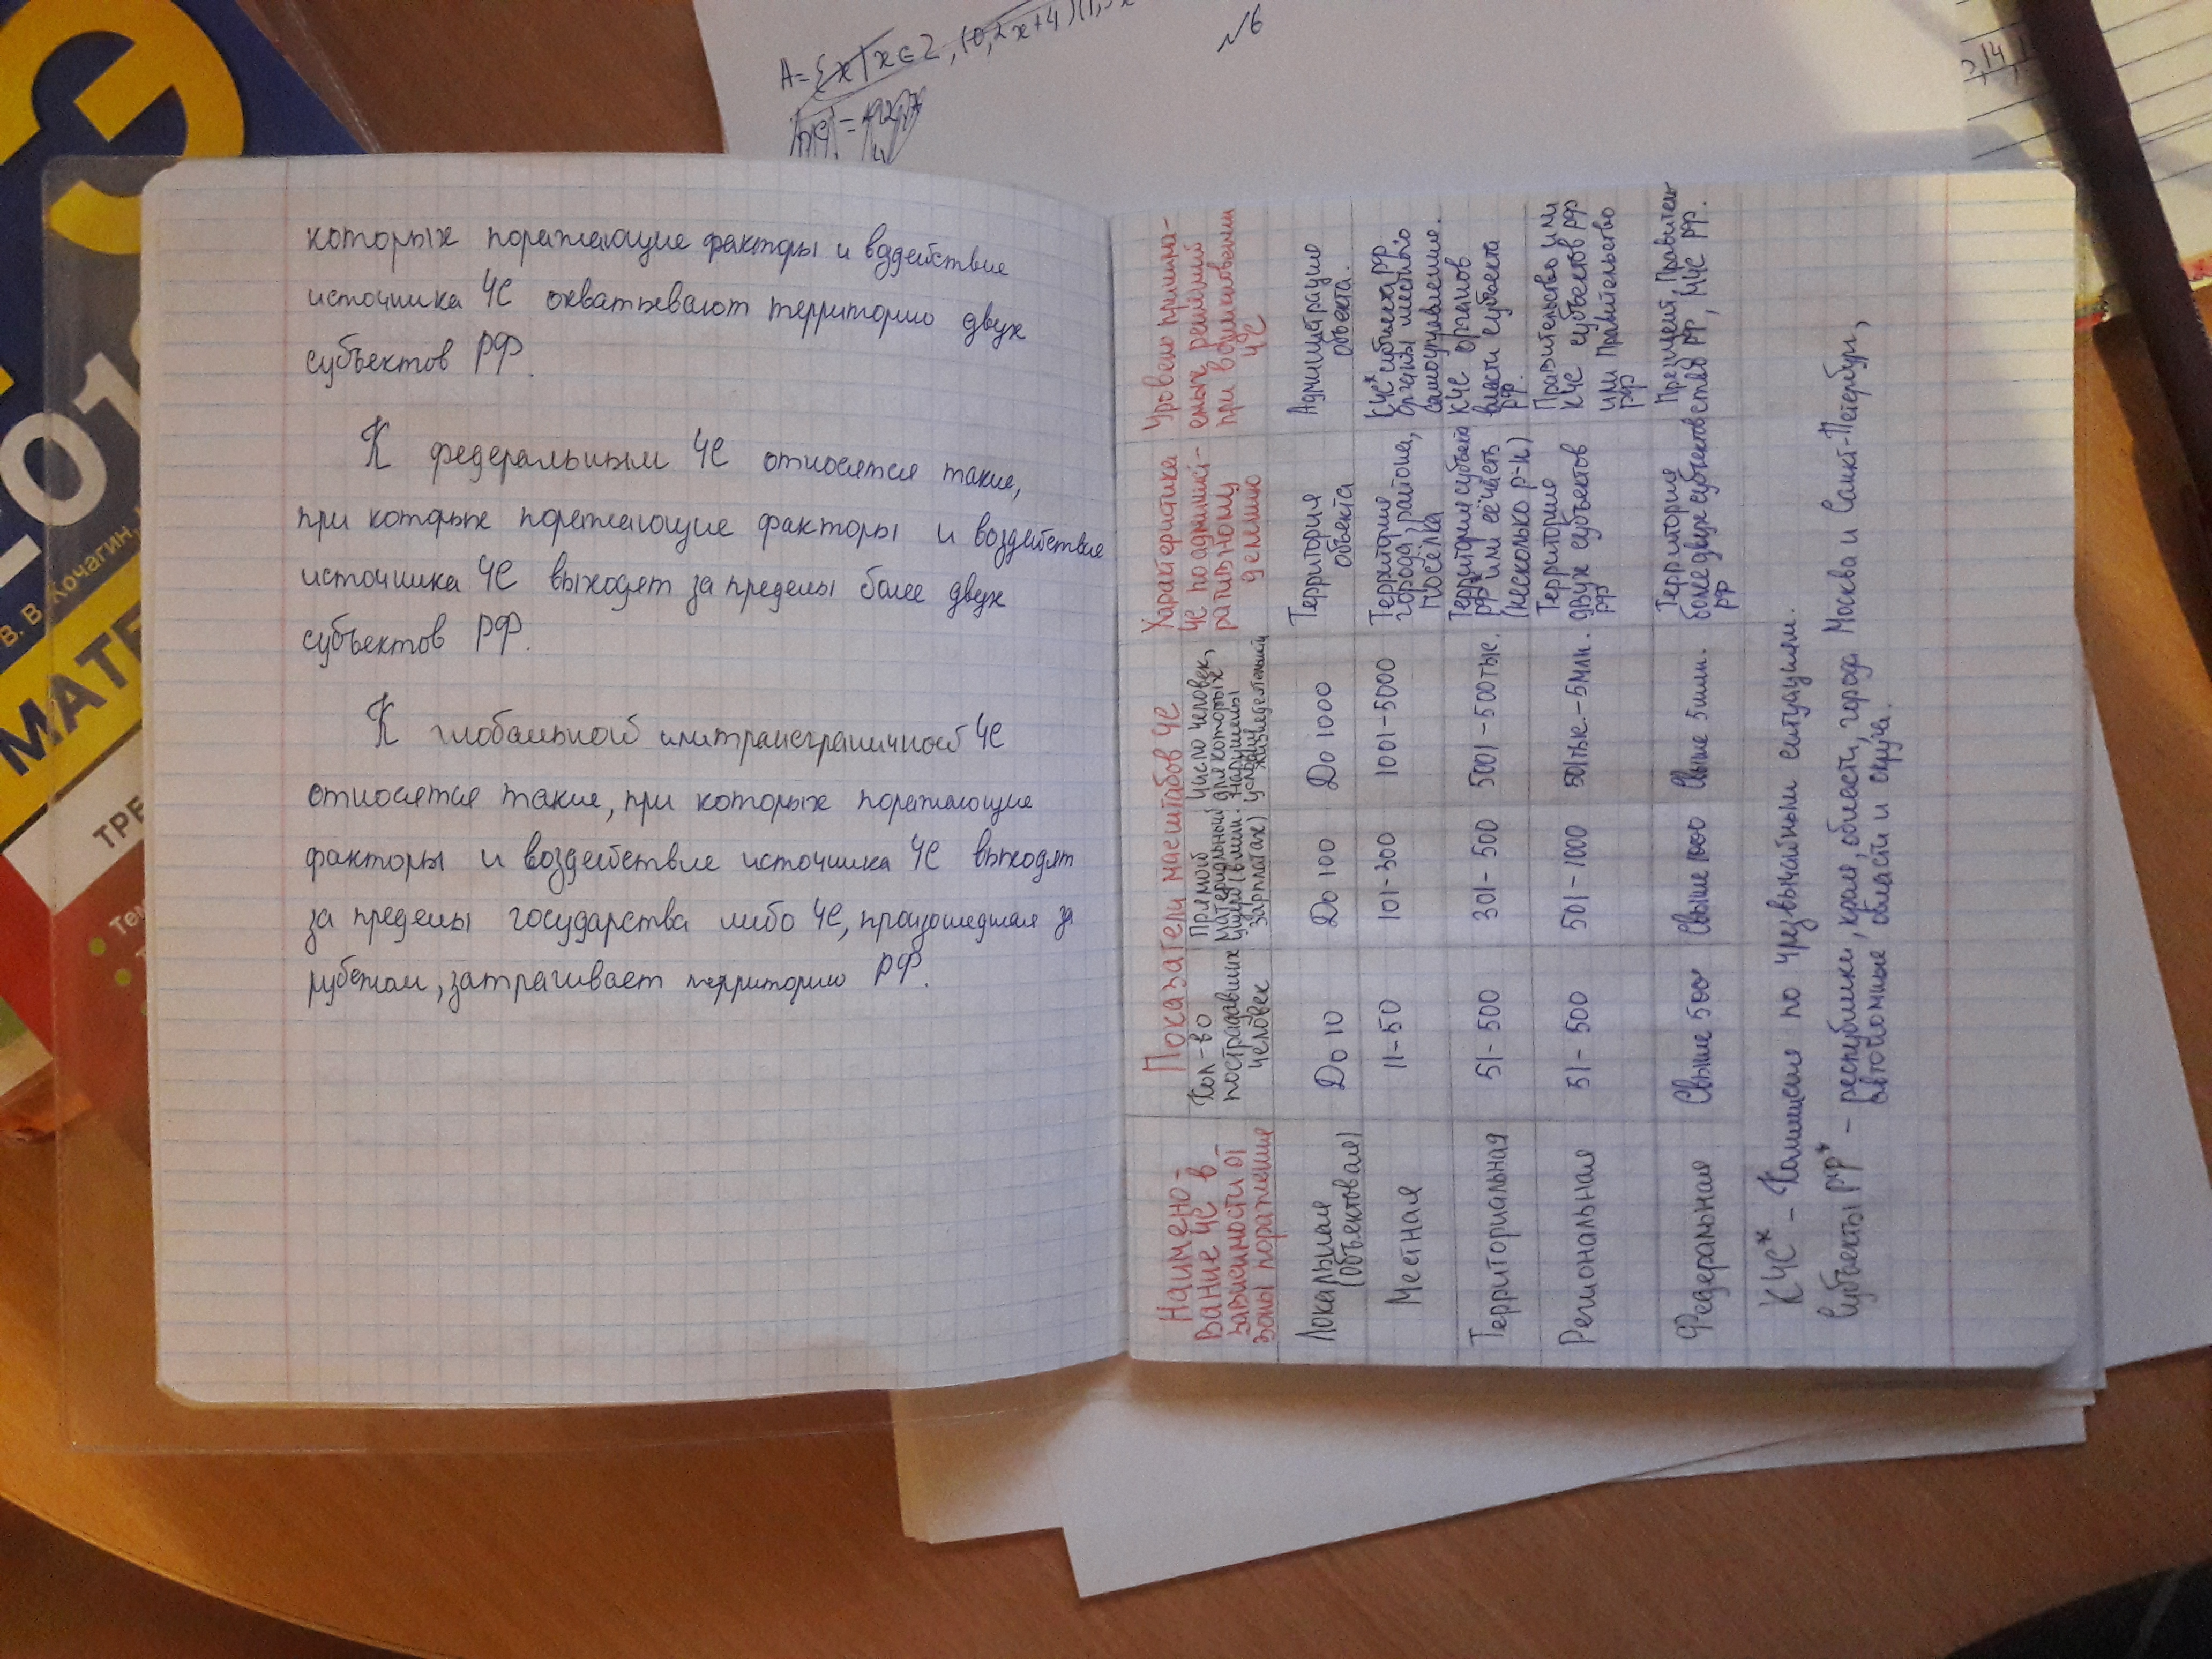 которых поражающие факторы и воздействие
источника ЧС охватывают территорию двух
субъектов РФ.
К федеральным ЧС относятся такие,
при которых поражающие факторы и воздействие
источника ЧС выходят за пределы более двух
субъектов РФ.
К глобальной или трансграничной ЧС
относятся такие, при которых поражающие
факторы и воздействие источника ЧС выходят
за пределы государства либо ЧС, произошедшая за
рубежом, затрагивает территорию РФ.
Наимено-
вание ЧС в
зависимости от
зоны поражения
Показатели масштабов ЧС
Кол-во
пострадавших
человек
Прямой
материальный
ущерб (в мин.
зарплатах)
Число человек,
для которых
нарушены
условия
жизнедеятельной
Характеристика
ЧС по админист-
ративному
делению
Уровень принима-
емых решений
при возникновении
ЧС
Локальная
(объектовая)
До 10
До 100
До 1000
Территория
объекта
Администрацию
объекта.
Местная
11-50
101-300
1001-5000
Территория
города, района,
посёлка
КЧС* субъекта РФ
органы местного
самоуправления.
Территориальная
51-500
301-500
5001-500тыс.
Территория субъекта
РФ* или её часть
(несколько р-н)
КЧС органов
власти субъекта
РФ.
Региональная
51-500
501-1000
501тыс.-5млн.
Территория
двух субъектов
РФ
Правительство или
КЧС субъектов РФ
или Правительство
РФ
Федеральная
Свыше 500
Свыше 1000
Свыше 5млн.
Территория
более двух субъектов
РФ
Президент, Правитель
ство РФ, МЧС РФ.
КЧС* - Комиссия по чрезвычайным ситуациям.
Субъекты РФ* - республики, края, области, города Москва и Санкт-Петербург,
автономные области и округа.
A={x|x∈Z, (0,2x+4)(1,5x
№6
3,14,
201
В. В. Кочагин,
МАТЕ
ТРЕ
Тем